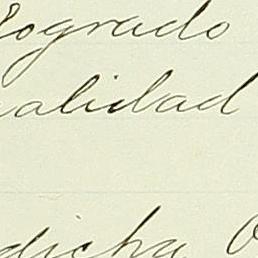 Logrado
alidad
dicha